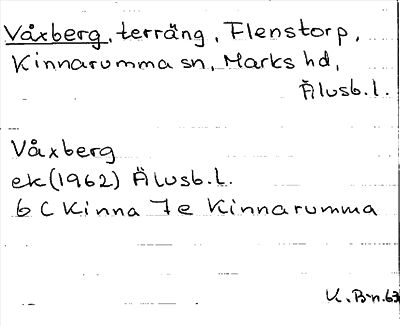 Våxberg, terräng, Flenstorp,
Kinnarumma sn, Marks hd,
Älvsb.l.
Våxberg
ek(1962) Älvsb.l.
6 C Kinna 7 e Kinnarumma
K.B-n.63